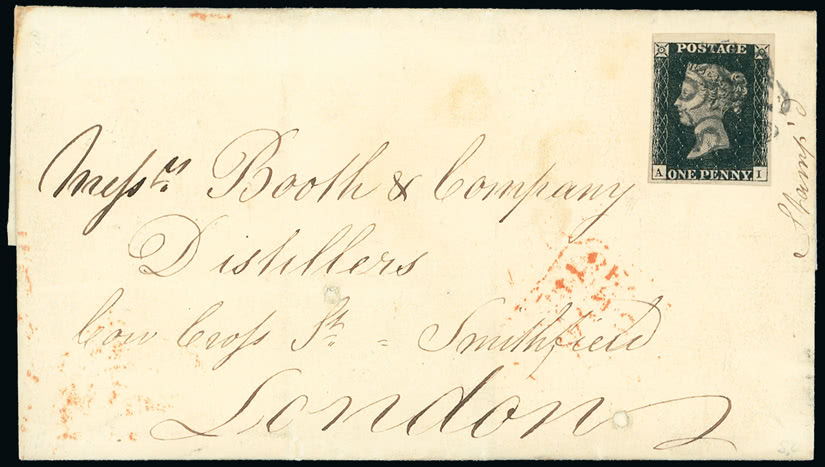 POSTAGE
A ONE PENNY I
Stamp'd
Messrs Booth & Company
Distillers
Cow Cross St = Smithfield
London